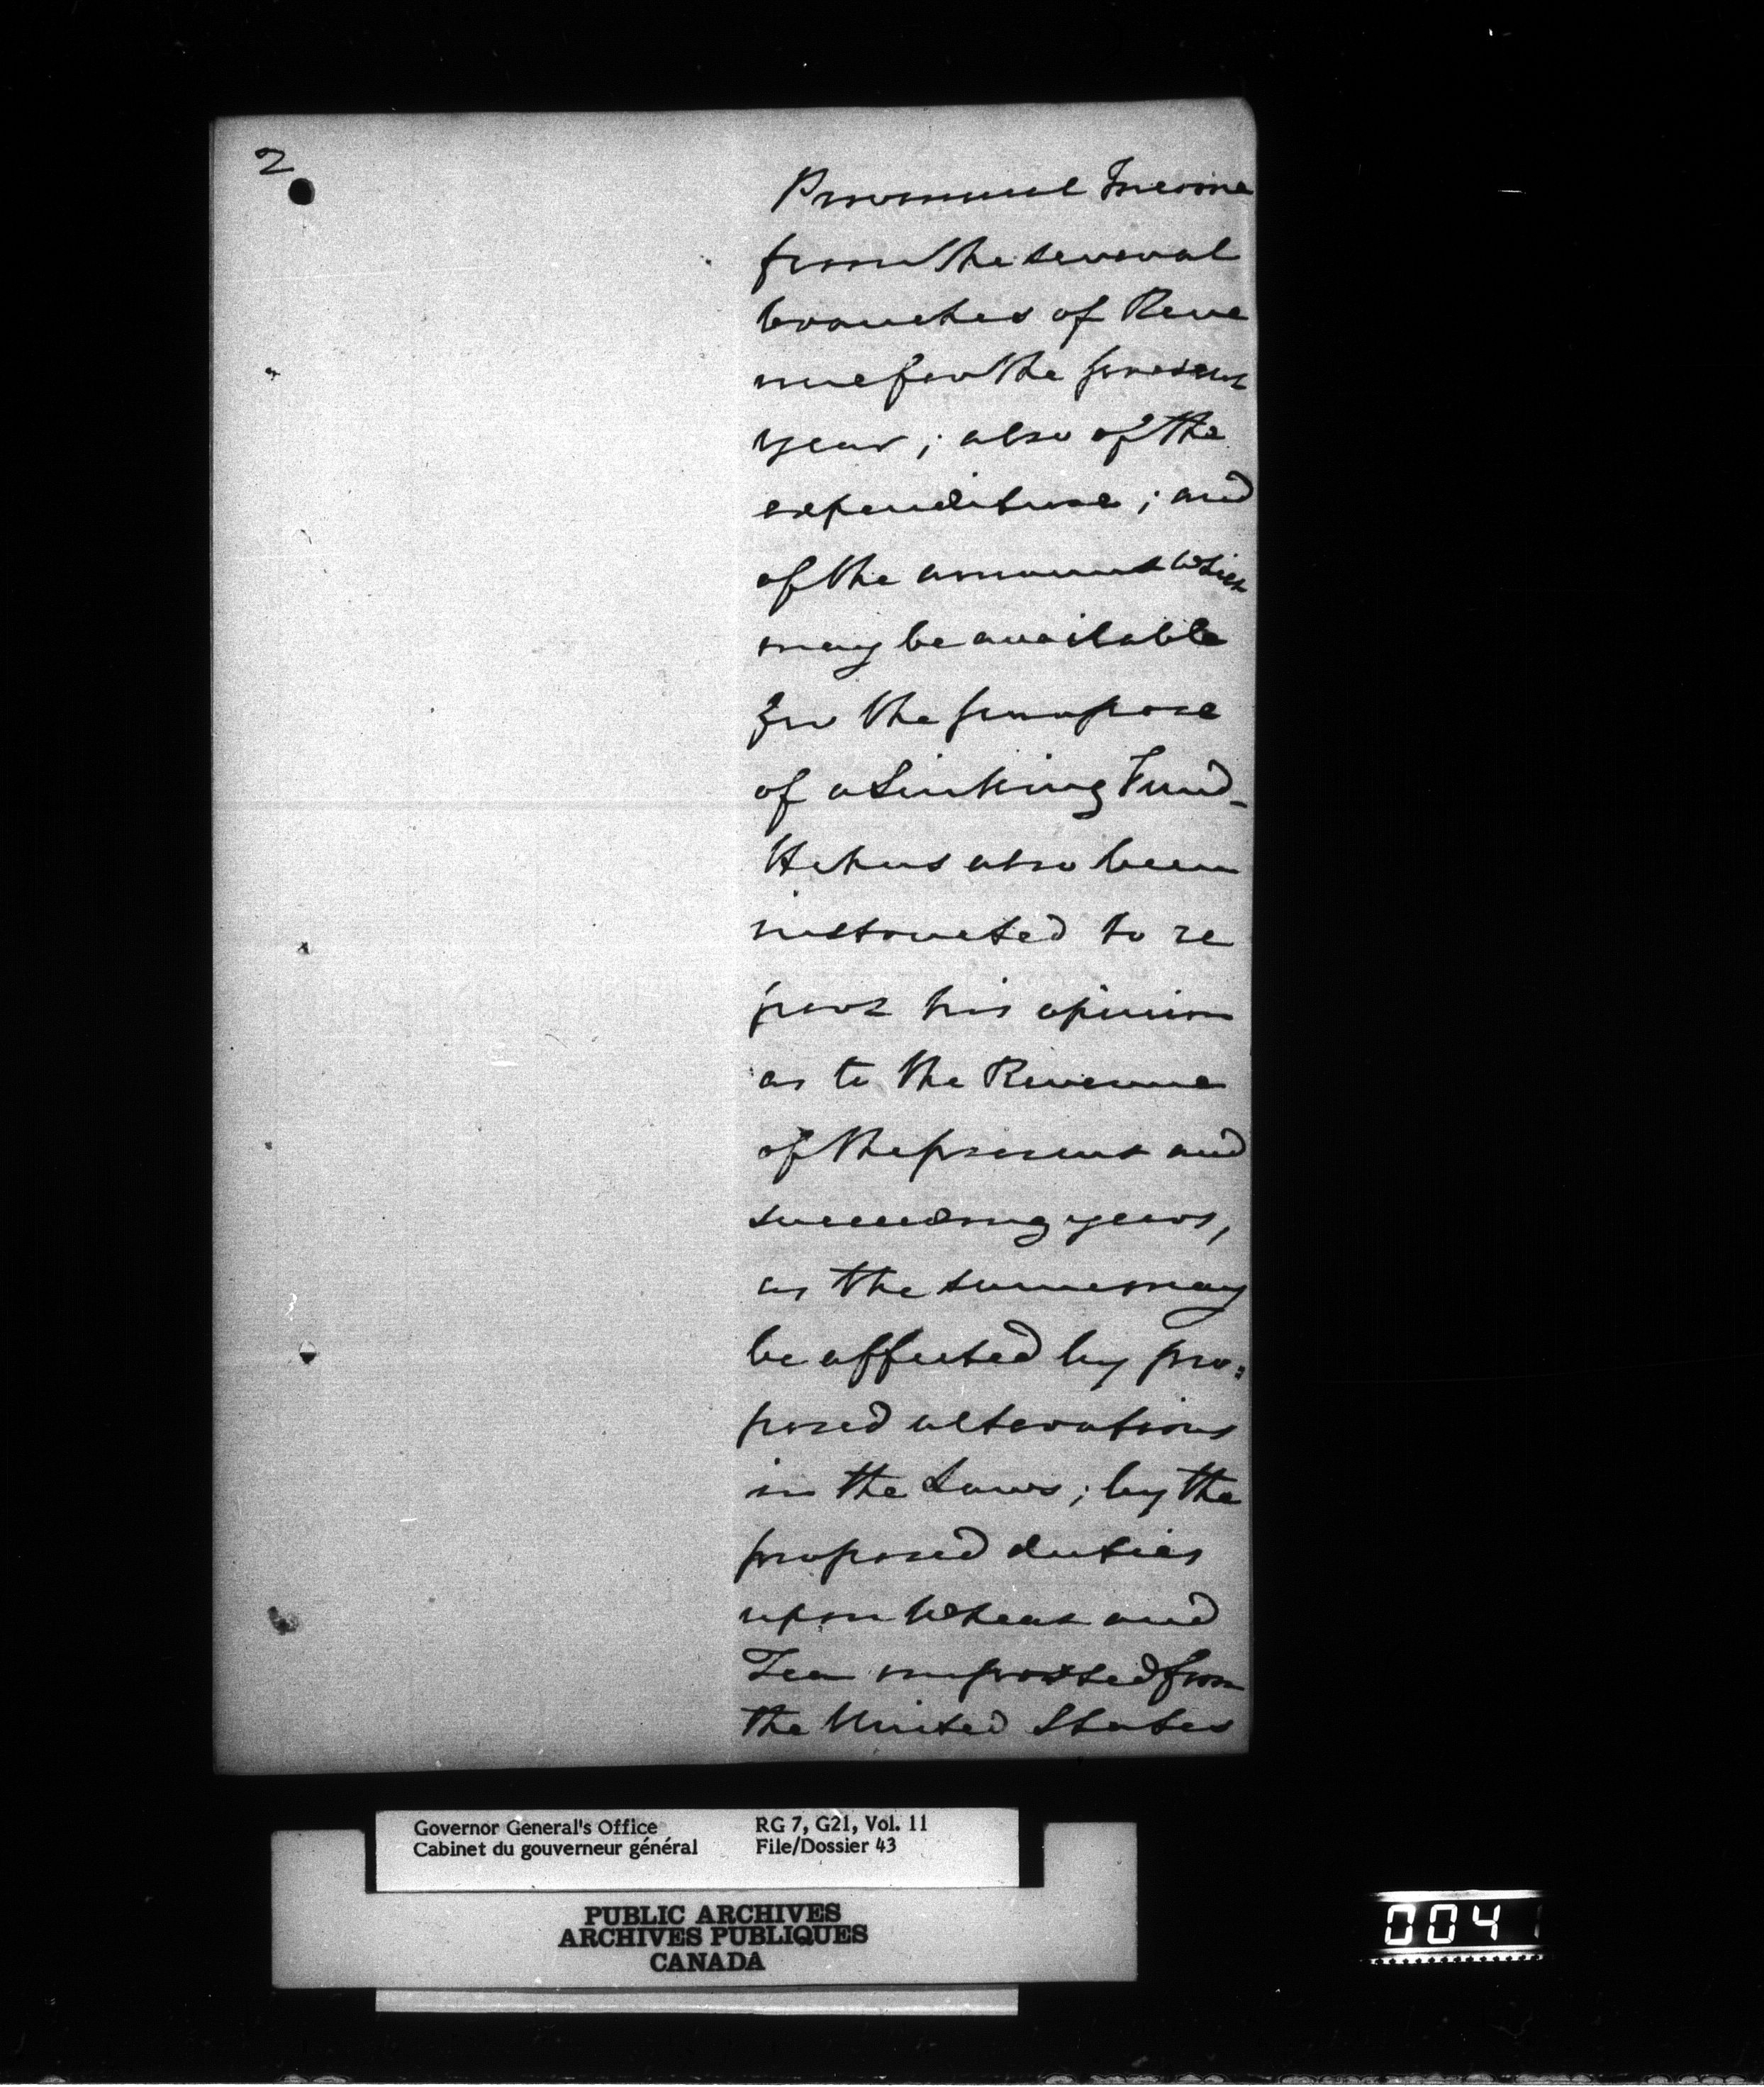 2
Provincial Income
from the several
branches of Reve
nue for the present
year; also of the
expenditure; and
of the amount which
may be available
for the purpose
of a Sinking Fund_
He has also been
instructed to re
port his opinion
as to the Revenue
of the present and
succeeding years,
as the same may
be affected by pro:
posed alterations
in the Laws; by the
proposed duties
upon Wheat and
Tea imported from
the United States
Governor General's Office
Cabinet du gouverneur général
RG 7, G21, Vol. 11
File/Dossier 43
PUBLIC ARCHIVES
ARCHIVES PUBLIQUES
CANADA
004